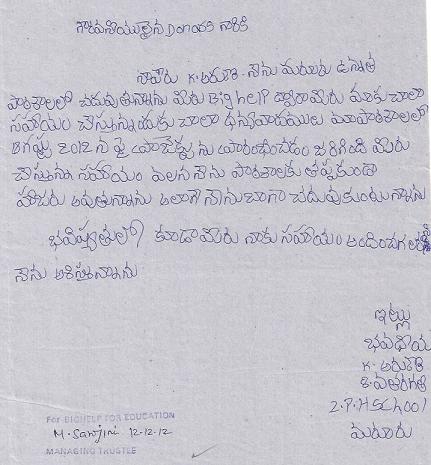 గౌరవనీయులైన Donar గారికి
నాపేరు K. అరుణ. నేను మరూరు ఉన్నత
పాఠశాలలో చదువుతున్నాను మీరు Big help ద్వారా మీరు మాకు చాలా
సహాయం చేస్తున్నందుకు చాలా ధన్యవాదములు మా పాఠశాలలో
ఆగష్టు 2012 న ప్రాజెక్టు ను ప్రారంభించడం జరిగింది మీరు
చేస్తున్న సహాయం వలన నేను పాఠశాలకు తప్పకుండా
హాజరు అవుతున్నాను అలాగే నేను బాగా చదువుకుంటున్నాను
భవిష్యత్తులో కూడా మీరు నాకు సహాయం అందించగలరని
నేను ఆశిస్తున్నాను
ఇట్లు
భవదీయ
K. అరుణ
8. వ తరగతి
Z.P.H School
మరూరు
For BIGHELP FOR EDUCATION
M. Sanjini 12-12-12
MANAGING TRUSTEE